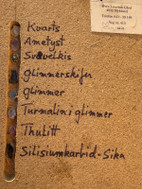 Kvarts
Ametyst
Svovelkis
Glimmerskifer
Glimmer
Turmalin i glimmer
Thulitt
Silisiumkarbid - Sika